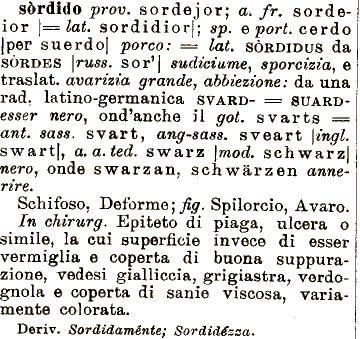 sòrdido prov. sordejor; a. fr. sorde-
ior |= lat. sordidior|; sp. e port. cerdo
|per suerdo| porco: = lat. SÒRDIDUS da
SÒRDES |russ. sor'| sudiciume, sporcizia, e
traslat. avarizia grande, abbiezione: da una
rad. latino-germanica SVARD- = SUARD-
esser nero, ond'anche il got. svarts =
ant. sass. svart, ang-sass. sveart |ingl.
swart|, a. a. ted. swarz |mod. schwarz|
nero, onde swarzan, schwärzen anne-
rire.
Schifoso, Deforme; fig. Spilorcio, Avaro.
In chirurg. Epiteto di piaga, ulcera o
simile, la cui superficie invece di esser
vermiglia e coperta di buona suppura-
zione, vedesi gialliccia, grigiastra, verdo-
gnola e coperta di sanie viscosa, varia-
mente colorata.
Deriv. Sordidaménte; Sordidézza.